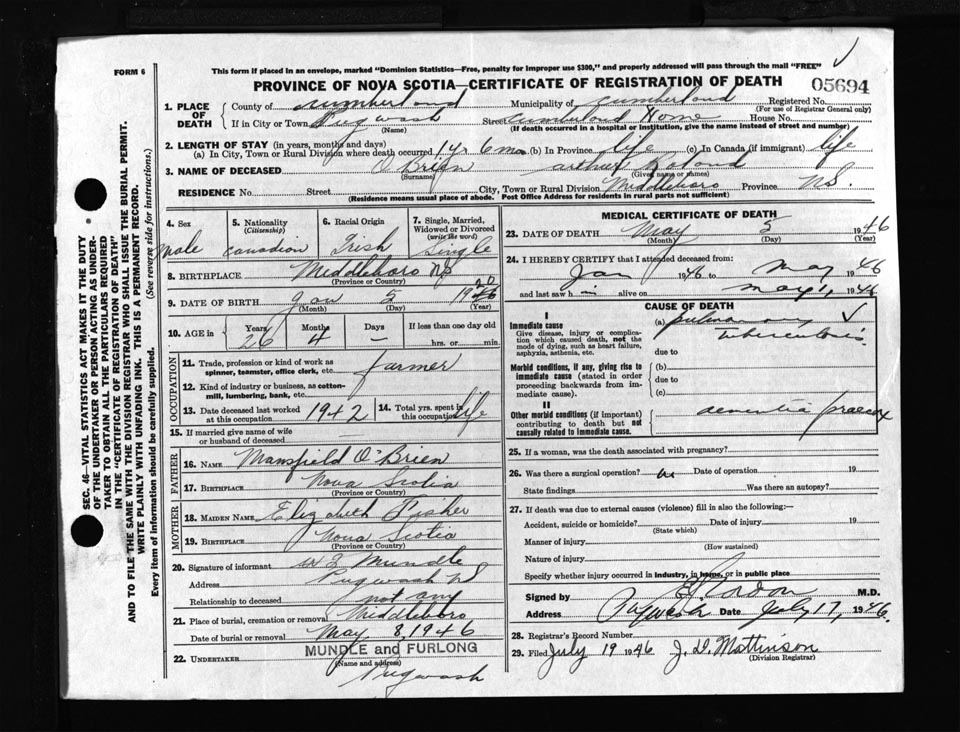 FORM 6
This form if placed in an envelope, marked "Dominion Statistics—Free, penalty for improper use $300," and properly addressed will pass through the mail "FREE"
PROVINCE OF NOVA SCOTIA—CERTIFICATE OF REGISTRATION OF DEATH
05694
1. PLACE OF DEATH
County of Cumberland Municipality of Cumberland Registered No.
(For use of Registrar General only)
If in City or Town Pugwash Street Cumberland Home House No.
(Name) (If death occurred in a hospital or institution, give the name instead of street and number)
2. LENGTH OF STAY (in years, months and days)
(a) In City, Town or Rural Division where death occurred 1 y. 6 mo. (b) In Province life (c) In Canada (if immigrant) life
3. NAME OF DECEASED O'Brien Arthur Roland
(Surname) (Given names or names)
RESIDENCE No. Street City, Town or Rural Division Middleboro Province N.S.
(Residence means usual place of abode. Post Office Address for residents in rural parts not sufficient)
4. Sex Male
5. Nationality (Citizenship) Canadian
6. Racial Origin Irish
7. Single, Married, Widowed or Divorced (write the word) Single
8. BIRTHPLACE Middleboro NS
(Province or Country)
9. DATE OF BIRTH Jan 5 19
(Month) (Day) (Year)
10. AGE in Years 26 Months 4 Days — If less than one day old
hrs. or min.
OCCUPATION
11. Trade, profession or kind of work as spinner, teamster, office clerk, etc. farmer
12. Kind of industry or business, as cotton-mill, lumbering, bank, etc.
13. Date deceased last worked at this occupation 1942
14. Total yrs. spent in this occupation life
15. If married give name of wife or husband of deceased —
FATHER
16. NAME Mansfield O'Brien
17. BIRTHPLACE Nova Scotia
(Province or Country)
MOTHER
18. MAIDEN NAME Elizabeth
19. BIRTHPLACE Nova Scotia
(Province or Country)
20. Signature of informant Mundle
Address Pugwash NS
Relationship to deceased not any
21. Place of burial, cremation or removal Middleboro
Date of burial or removal May 8, 1946
22. UNDERTAKER MUNDLE and FURLONG
(Name and address)
Pugwash
MEDICAL CERTIFICATE OF DEATH
23. DATE OF DEATH May 5 1946
(Month) (Day) (Year)
24. I HEREBY CERTIFY that I attended deceased from:
Jan 1946 to May 1946
and last saw h im alive on May 1, 1946
CAUSE OF DEATH
I
Immediate cause
Give disease, injury or complication which caused death, not the mode of dying, such as heart failure, asphyxia, asthenia, etc.
(a) pulmonary tuberculosis
due to
Morbid conditions, if any, giving rise to immediate cause (stated in order proceeding backwards from immediate cause).
(b)
due to
(c)
II
Other morbid conditions (if important) contributing to death but not causally related to immediate cause.
dementia praecox
25. If a woman, was the death associated with pregnancy?
26. Was there a surgical operation? no Date of operation 19
State findings Was there an autopsy?
27. If death was due to external causes (violence) fill in also the following:—
Accident, suicide or homicide? Date of injury 19
(State which)
Manner of injury
(How sustained)
Nature of injury
Specify whether injury occurred in industry, in home, or in public place
Signed by M.D.
Address Pugwash Date July 17, 1946.
28. Registrar's Record Number
29. Filed July 19 1946 J. D. Mattinson
(Division Registrar)
SEC. 46—VITAL STATISTICS ACT MAKES IT THE DUTY
OF THE UNDERTAKER OR PERSON ACTING AS UNDER-
TAKER TO OBTAIN ALL THE PARTICULARS REQUIRED
IN THE "CERTIFICATE OF REGISTRATION OF DEATH"
AND TO FILE THE SAME WITH THE DIVISION REGISTRAR WHO SHALL ISSUE THE BURIAL PERMIT.
WRITE PLAINLY WITH UNFADING INK. THIS IS A PERMANENT RECORD.
Every item of information should be carefully supplied. (See reverse side for instructions.)